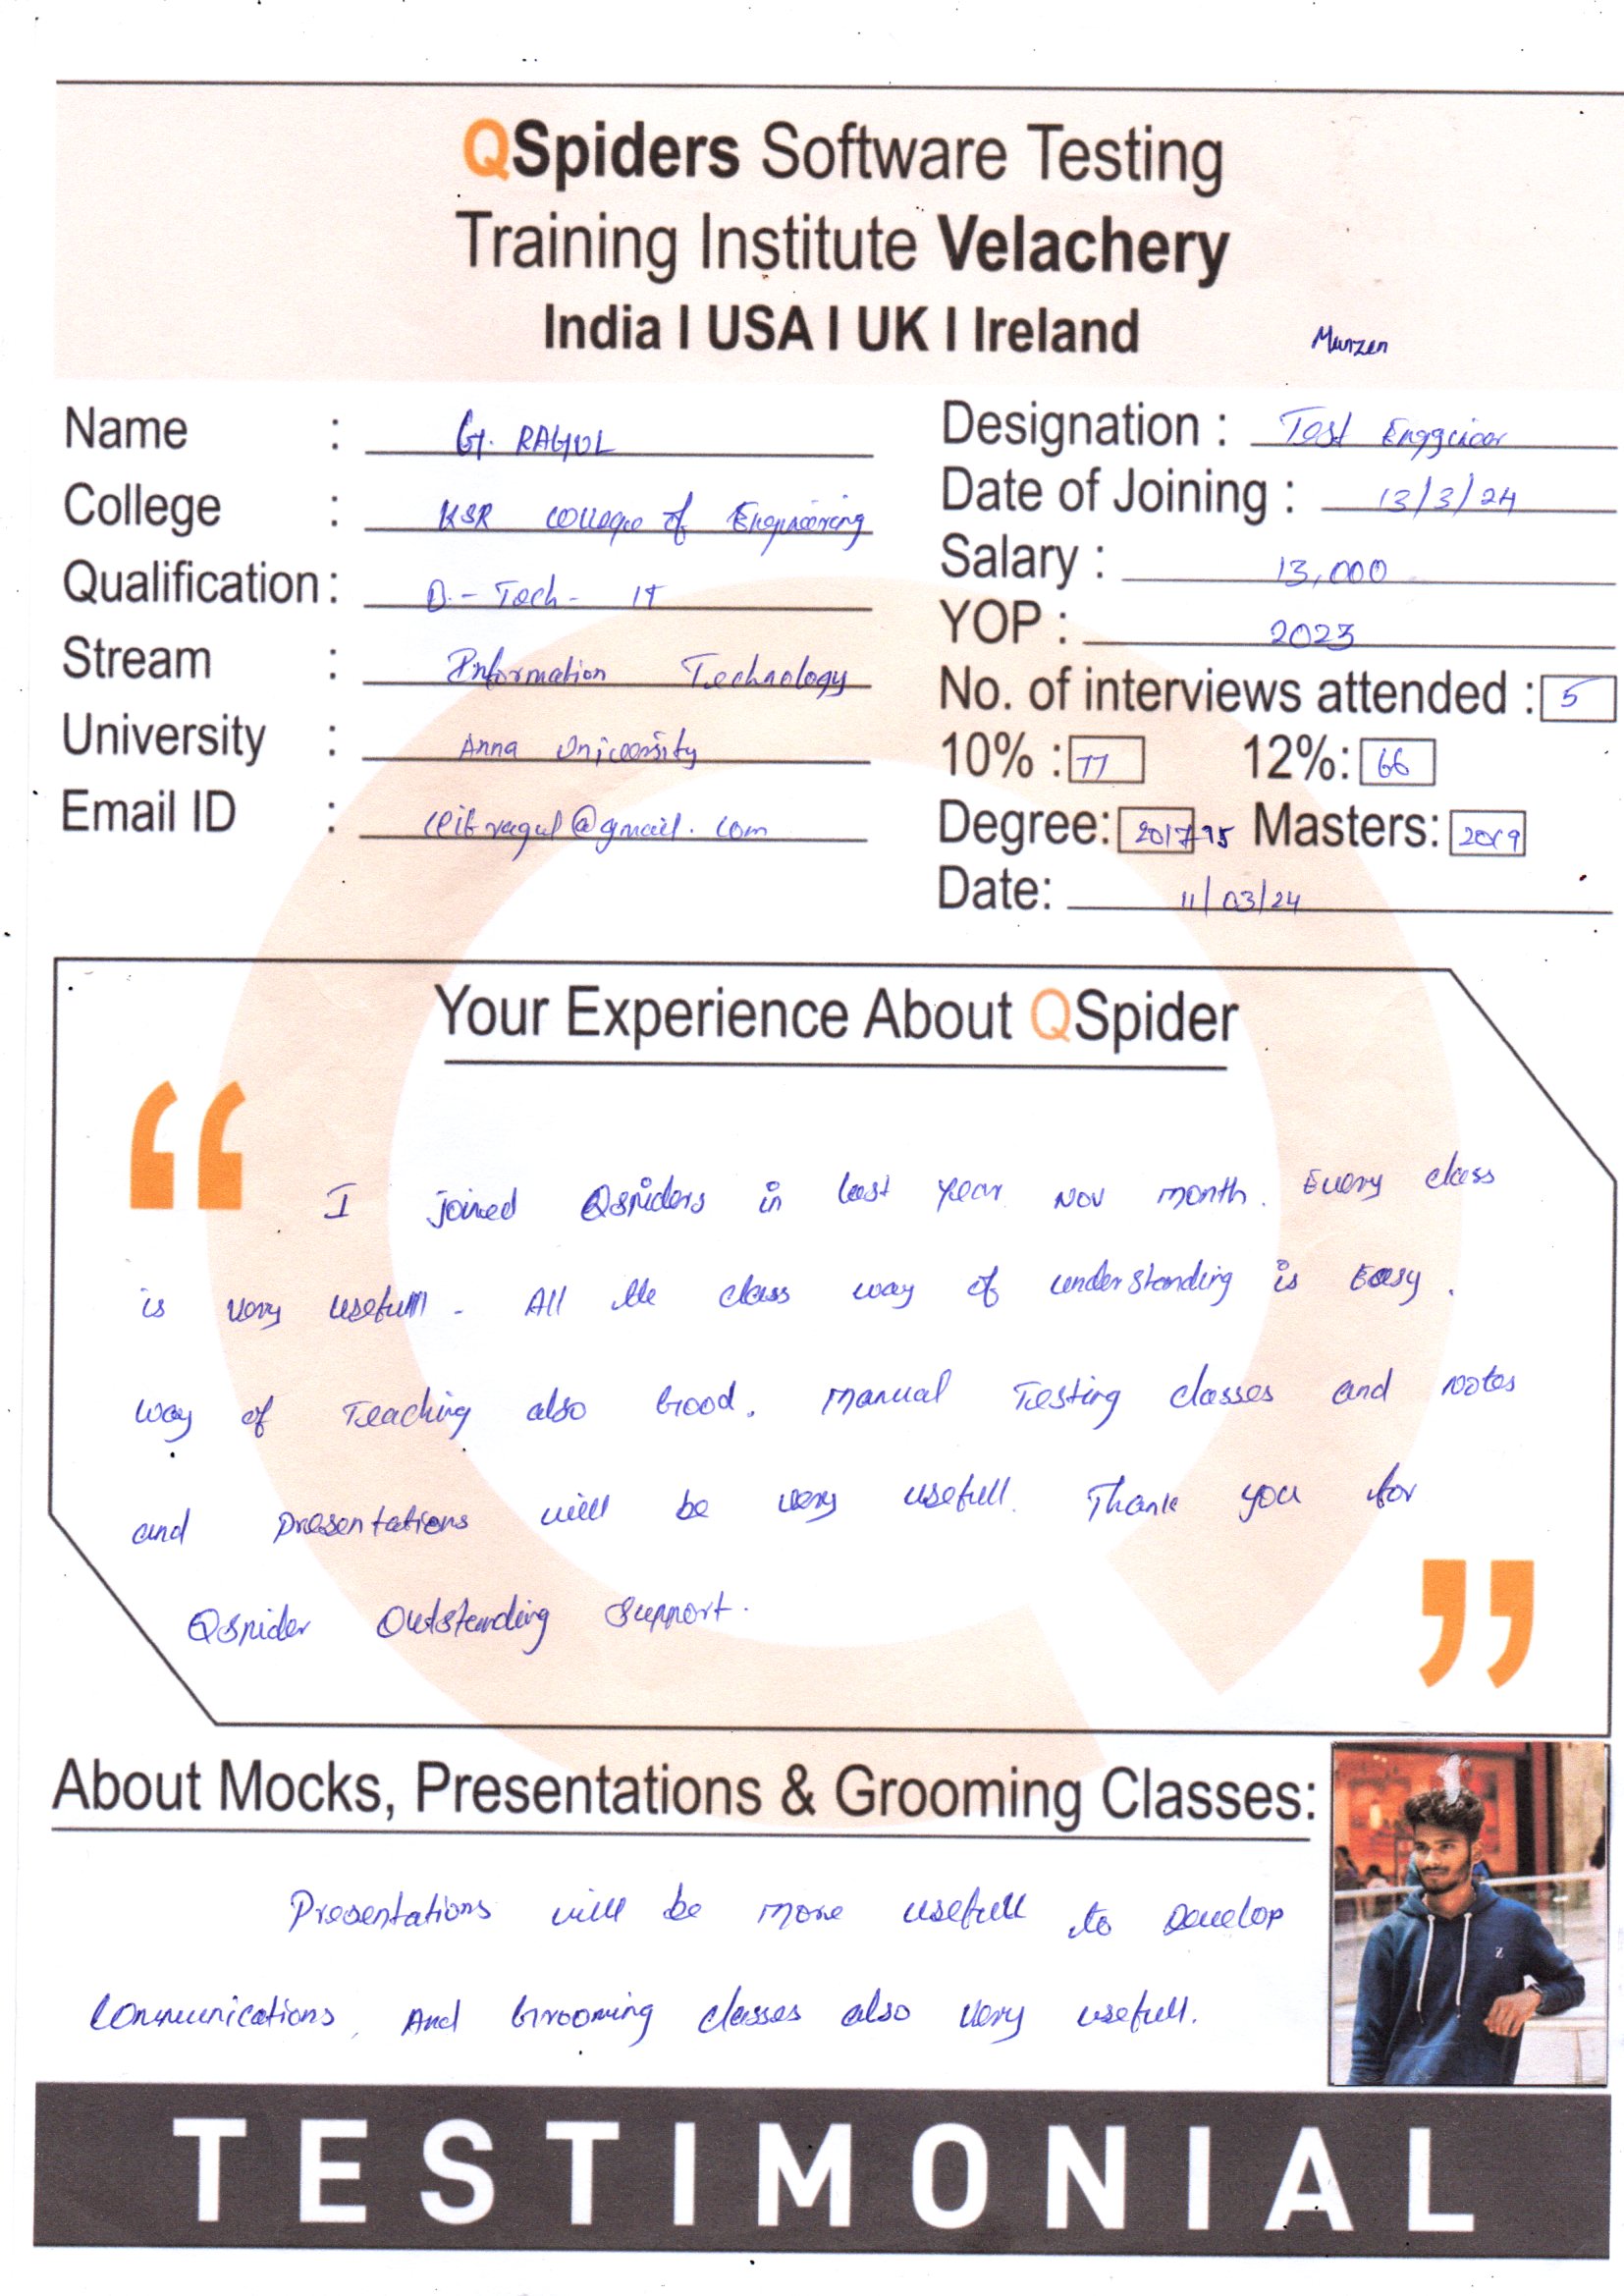 QSpiders Software Testing
Training Institute Velachery
India I USA I UK I Ireland
Name : G. RAGUL
College : KSR College of Engineering
Qualification : B.-Tech- IT
Stream : Information Technology
University : Anna University
Email ID : @gmail.com
Designation : Test
Date of Joining : 13/3/24
Salary : 13,000
YOP : 2023
No. of interviews attended : 5
10% : 77 12%: 66
Degree: 75 Masters:
Date: 11/03/24
Your Experience About QSpider
“ I joined Qspiders in last year Nov month. Every class
is very usefull. All the class way of understanding is Easy.
way of Teaching also Good. Manual Testing classes and notes
and presentations will be very usefull. Thank you for
Qspider Outstanding support. ”
About Mocks, Presentations & Grooming Classes:
Presentations will be more usefull to Develop
Communications. And Grooming classes also very usefull.
Z
TESTIMONIAL